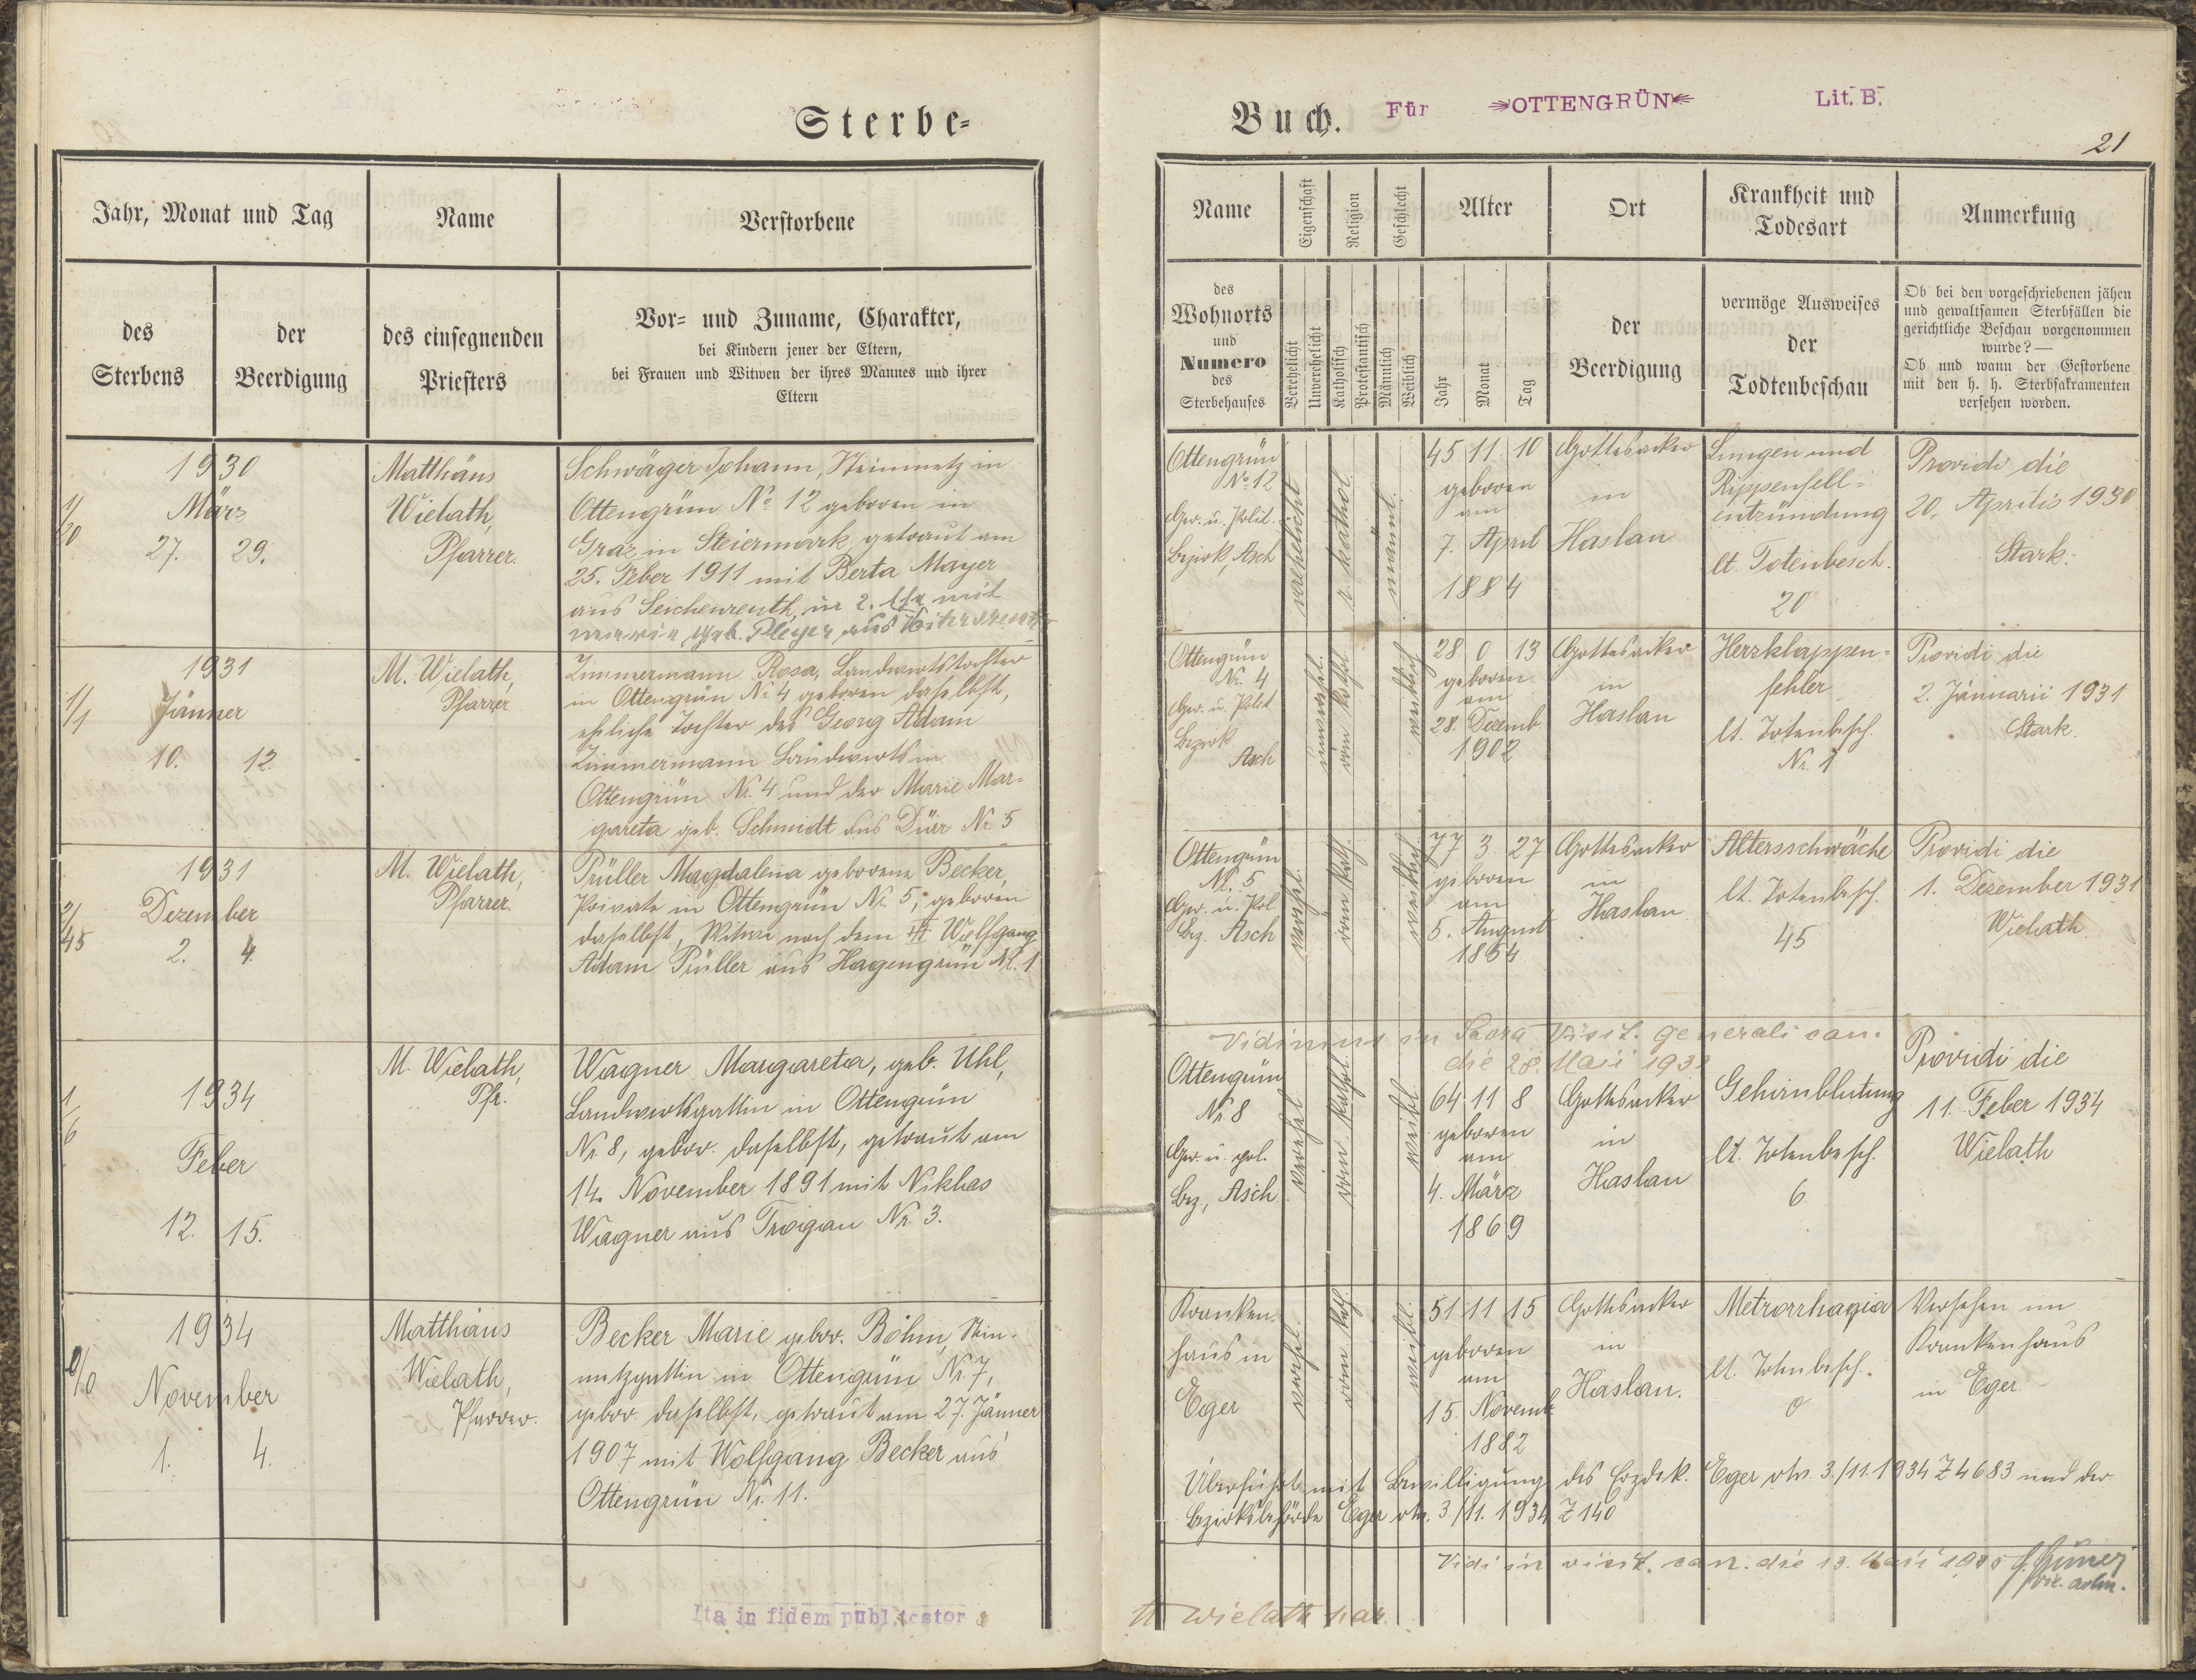 Sterbe-
Jahr, Monat und Tag
Name
Verstorbene
des
Sterbens
der
Beerdigung
des einsegnenden
Priesters
Vor- und Zuname, Charakter,
bei Kindern jener der Eltern,
bei Frauen und Witwen der ihres Mannes und ihrer
Eltern
1930
März
27. 29.
Matthäus
Wielath,
Pfarrer.
Schwäger Johann, Steinmetz in
Ottengrün No 12 geboren in
Graz in Steiermark, getraut am
25. Feber 1911 mit Berta Mayer
aus Seichenreuth, in 2. Ehe mit
geb. Pleyer aus
1/1
1931
Jänner
10. 12.
M. Wielath,
Pfarrer
Zimmermann Rosa, Landwirtstochter
in Ottengrün Nr. 4 geboren daselbst,
eheliche Tochter des Georg Adam
Zimmermann Landwirts in
Ottengrün Nr. 4 und der Marie Mar-
gareta geb. Schmidt aus Dürr Nr. 5
2/45
1931
Dezember
2. 4.
M. Wielath,
Pfarrer.
Prüller Magdalena geborene Becker,
Private in Ottengrün Nr. 5, geboren
daselbst, Witwe nach dem Wolfgang
Adam Prüller aus Hagengrün Nr. 1
1/6
1934
Feber
12. 15.
M. Wielath,
Pfr.
Wagner Margareta, geb. Uhl,
Landwirtsgattin in Ottengrün
Nr. 8, gebor. daselbst, getraut am
14. November 1891 mit Niklas
Wagner aus Trogau Nr. 3.
2/0
1934
November
1. 4.
Matthäus
Wielath,
Pfarrer.
Becker Marie gebor. Böhm, Stein-
metzgattin in Ottengrün Nr. 7,
gebor. daselbst, getraut am 27. Jänner
1907 mit Wolfgang Becker aus
Ottengrün Nr. 11.
Ita in fidem publicator
Buch.
Für OTTENGRÜN
Lit. B.
21
Name
Eigenschaft
Religion
Geschlecht
Alter
Ort
Krankheit und
Todesart
Anmerkung
des
Wohnorts
und
Numero
des
Sterbehauses
Verehelicht
Unverehelicht
Katholisch
Protestantisch
Männlich
Weiblich
Jahr
Monat
Tag
der
Beerdigung
vermöge Ausweises
der
Todtenbeschau
Ob bei den vorgeschriebenen jähen
und gewaltsamen Sterbfällen die
gerichtliche Beschau vorgenommen
wurde? —
Ob und wann der Gestorbene
mit den h. h. Sterbsakramenten
versehen worden.
Ottengrün
No 12
Ger. u. Polit.
bezirk, Asch
verehelicht
r. kathol.
männl.
45 11 10
geboren
am
7. April
1884
Gottesacker
in
Haslau
Lungen und
Rippenfell-
entzündung
lt. Totenbesch.
20
Providi die
20. Aprilis 1930
Stark.
Ottengrün
Nr. 4
Ger. u. Polit
bezirk
Asch
unverehl.
röm kathol
weiblich
28 0 13
geboren
am
28. Dezemb.
1902
Gottesacker
in
Haslau
Herzklappen-
fehler
lt. Totenbesch.
Nr. 1
Providi die
2. Jännarii 1931
Stark.
Ottengrün
Nr. 5
Ger. u. Pol.
bez. Asch
verehel.
röm kath.
weiblich
77 3 27
geboren
am
5. August
1854
Gottesacker
in
Haslau
Altersschwäche
lt. Totenbesch.
45
Providi die
1. Dezember 1931
Wielath
Vidimus in Sacra Visit. generali can.
die 28. Maii 193
Ottengrün
Nr. 8
Ger. u. pol.
bez., Asch
verehel
röm. kathol.
weibl.
64 11 8
geboren
am
4. März
1869
Gottesacker
in
Haslau
Gehirnblutung
lt. Totenbesch.
6
Providi die
11. Feber 1934
Wielath
Kranken
haus in
Eger
verehel.
röm kath.
weibl.
51 11 15
geboren
am
15. Novemb
1882
Gottesacker
in
Haslau.
Metrorrhagia
lt. Totenbesch.
0
Versehen im
Krankenhaus
in Eger
Überführt mit Bewilligung des Erzdek. Eger v. 3./11. 1934 Z 4683 und der
Bezirksbehörde Eger v. 3/11. 1934 Z 140
Vidi in visit. can. die 13. Maii
vic. adm.
Wielath par.